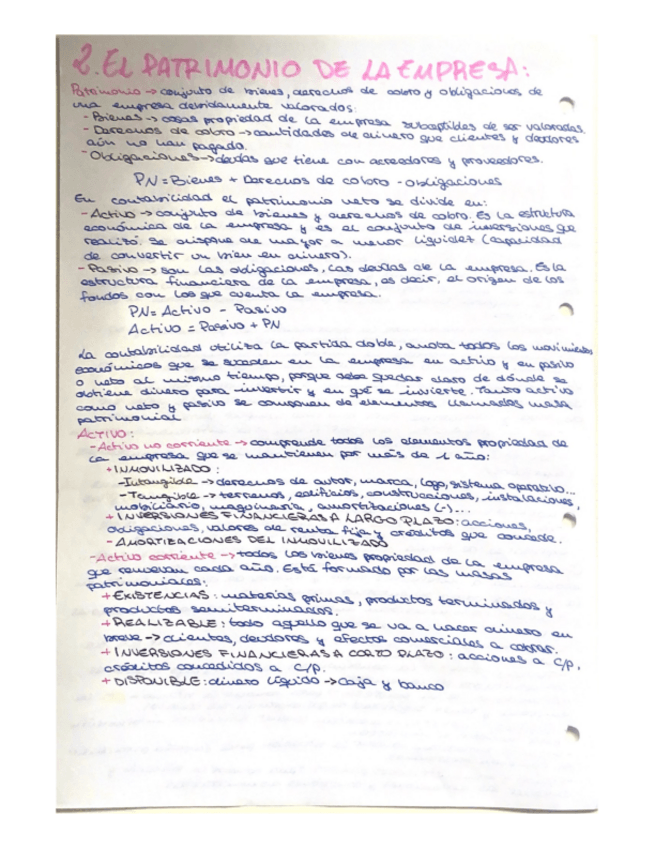 2. EL PATRIMONIO DE LA EMPRESA:
Patrimonio → conjunto de bienes, derechos de cobro y obligaciones de
una empresa debidamente valorados:
- Bienes → cosas propiedad de la empresa susceptibles de ser valoradas.
- Derechos de cobro → cantidades de dinero que clientes y deudores
aún no han pagado.
- Obligaciones → deudas que tiene con acreedores y proveedores.
PN = Bienes + Derechos de cobro - obligaciones
En contabilidad el patrimonio neto se divide en:
- Activo → conjunto de bienes y derechos de cobro. Es la estructura
económica de la empresa y es el conjunto de inversiones que
realizó. Se dispone de mayor a menor liquidez (capacidad
de convertir un bien en dinero).
- Pasivo → son las obligaciones, las deudas de la empresa. Es la
estructura financiera de la empresa, es decir, el origen de los
fondos con los que cuenta la empresa.
PN = Activo - Pasivo
Activo = Pasivo + PN
La contabilidad utiliza la partida doble, anota todos los movimientos
económicos que se suceden en la empresa en activo y en pasivo
o neto al mismo tiempo, porque debe quedar claro de dónde se
obtiene dinero para invertir y en qué se invierte. Tanto activo
como neto y pasivo se componen de elementos llamados masa
patrimonial.
ACTIVO:
- Activo no corriente → comprende todos los elementos propiedad de
la empresa que se mantienen por más de 1 año:
+ INMOVILIZADO:
- Intangible → derechos de autor, marca, logo, sistema operativo...
- Tangible → terrenos, edificios, construcciones, instalaciones,
mobiliario, maquinaria, amortizaciones (-)...
+ INVERSIONES FINANCIERAS A LARGO PLAZO: acciones,
obligaciones, valores de renta fija y créditos que concede.
- AMORTIZACIONES DEL INMOVILIZADO
- Activo corriente → todos los bienes propiedad de la empresa
que renuevan cada año. Está formado por las masas
patrimoniales:
+ EXISTENCIAS: materias primas, productos terminados y
productos semiterminados.
+ REALIZABLE: todo aquello que se va a hacer dinero en
breve → clientes, deudores y efectos comerciales a cobrar.
+ INVERSIONES FINANCIERAS A CORTO PLAZO: acciones a c/p,
créditos concedidos a c/p.
+ DISPONIBLE: dinero líquido → caja y banco